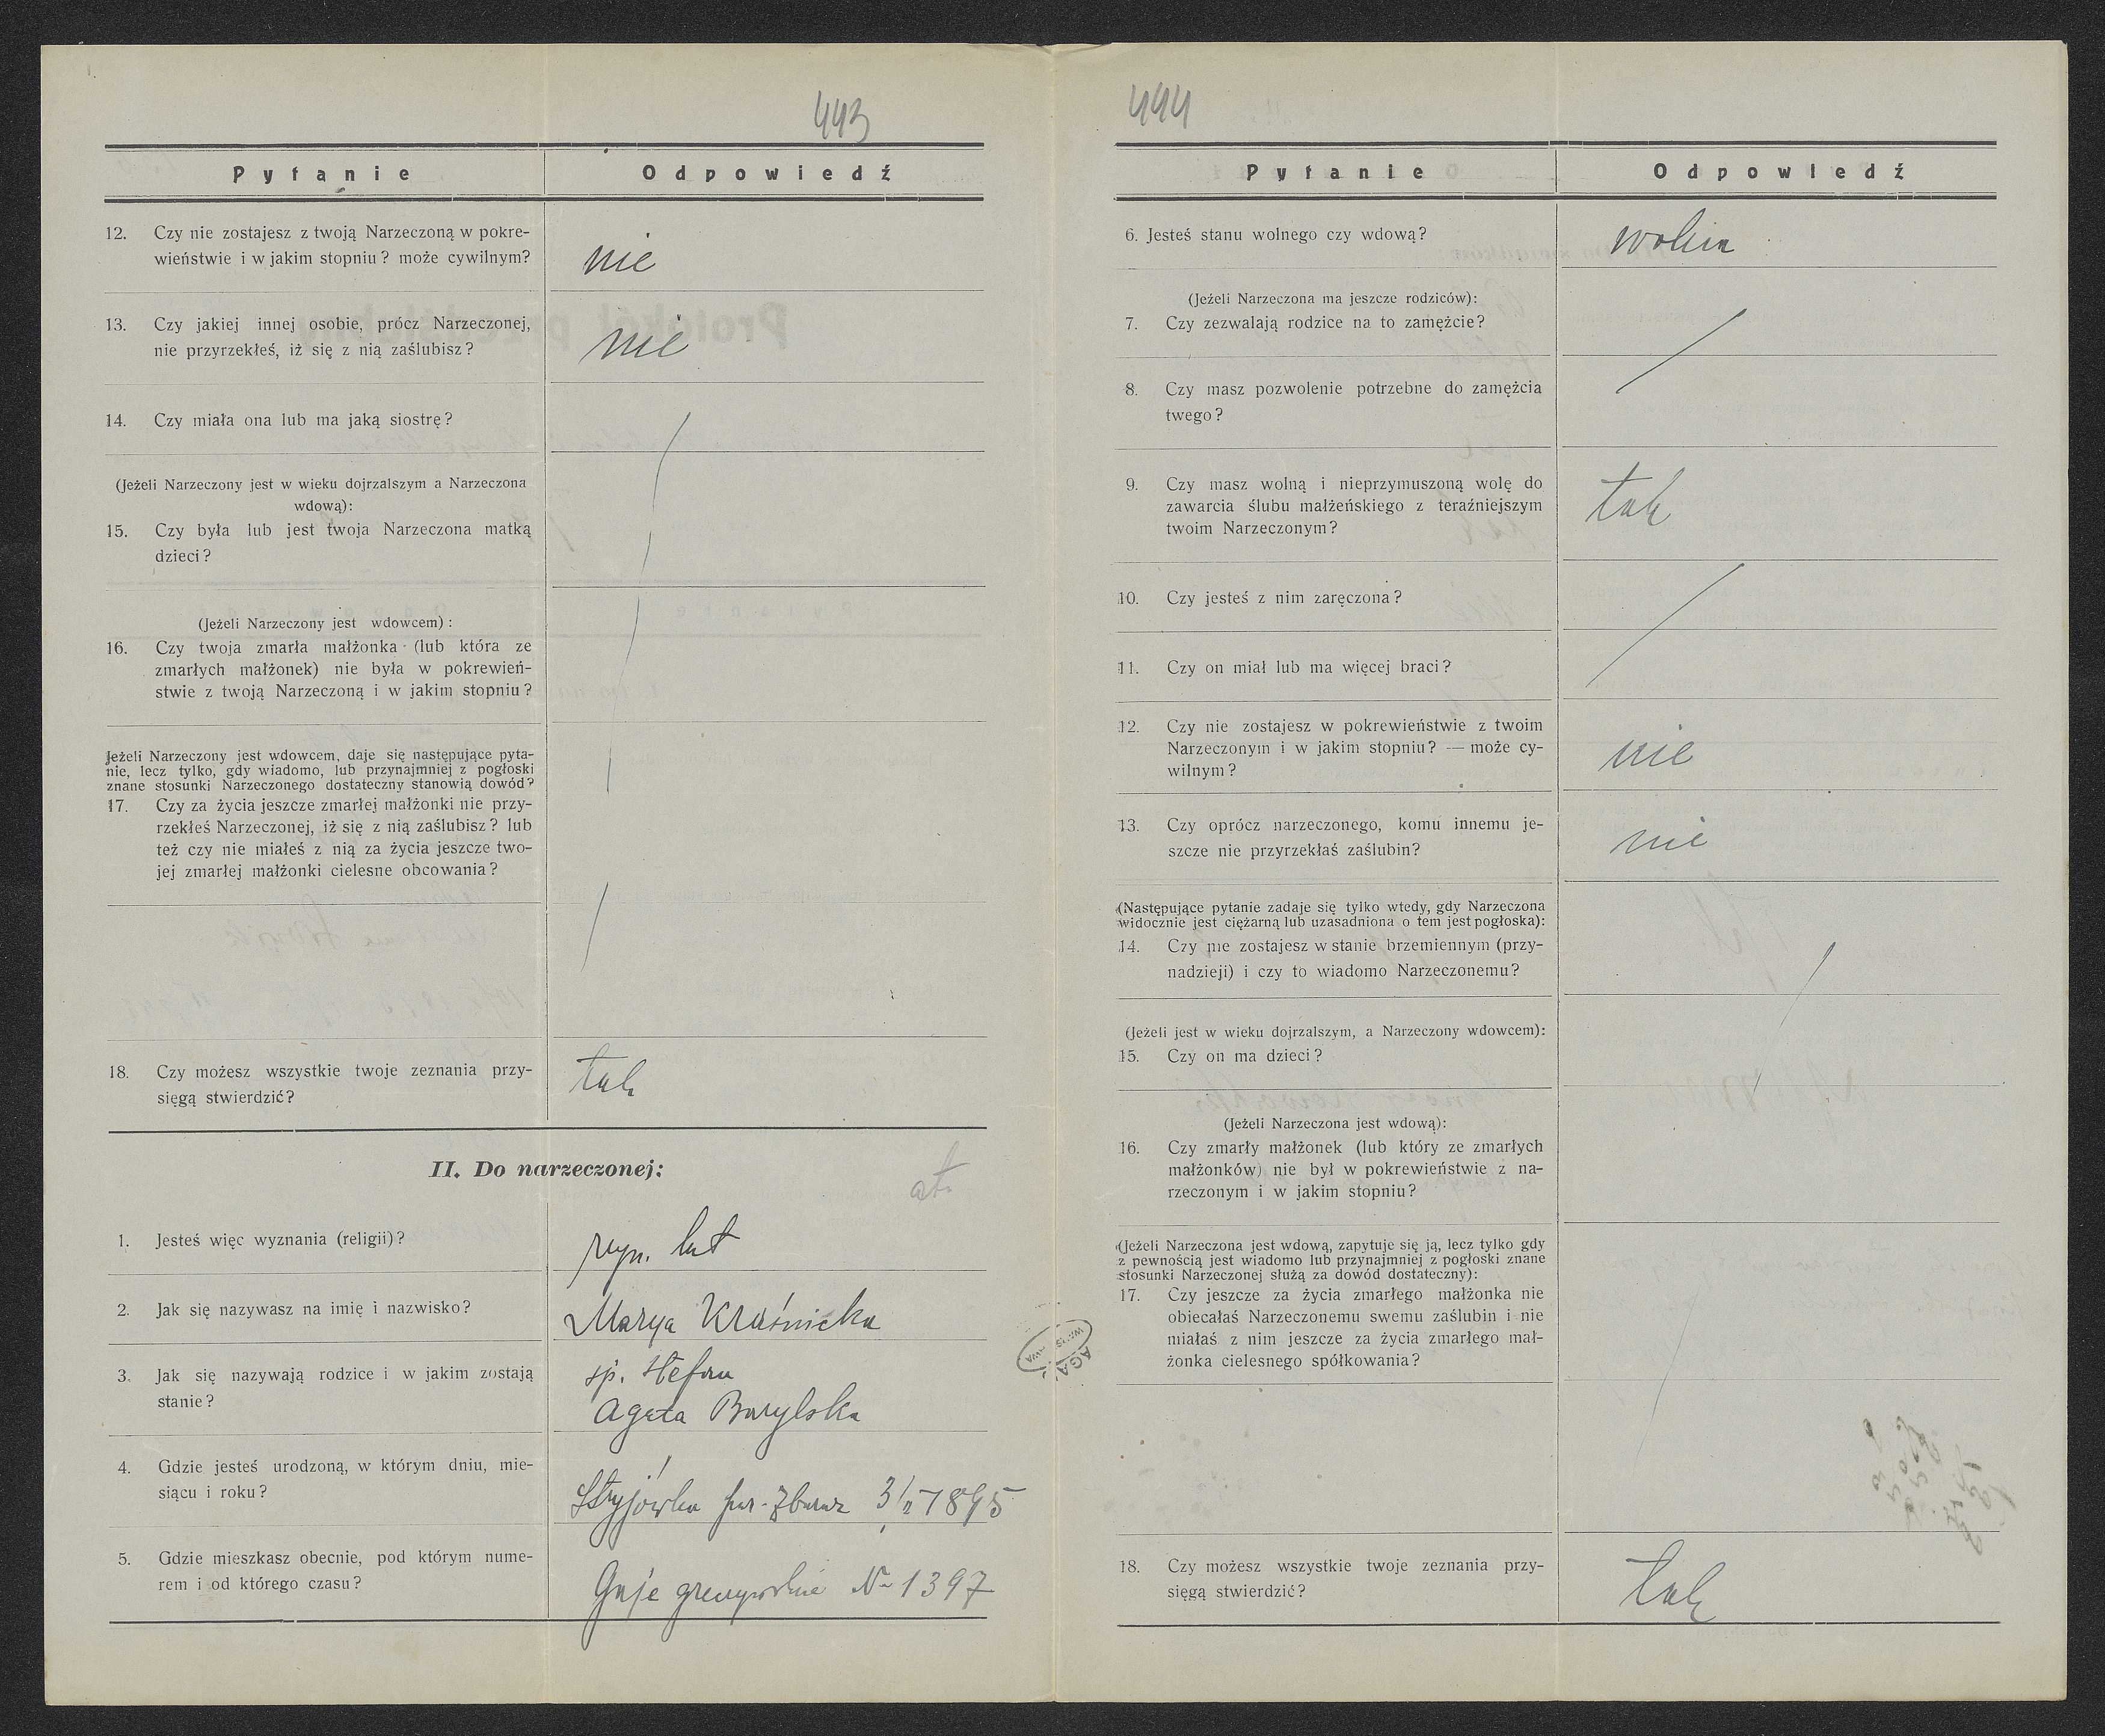 443
Pytanie Odpowiedź
12. Czy nie zostajesz z twoją Narzeczoną w pokre-
wieństwie i w jakim stopniu? może cywilnym?
nie
13. Czy jakiej innej osobie, prócz Narzeczonej,
nie przyrzekłeś, iż się z nią zaślubisz?
nie
14. Czy miała ona lub ma jaką siostrę?
(Jeżeli Narzeczony jest w wieku dojrzalszym a Narzeczona
wdową):
15. Czy była lub jest twoja Narzeczona matką
dzieci?
(Jeżeli Narzeczony jest wdowcem):
16. Czy twoja zmarła małżonka (lub która ze
zmarłych małżonek) nie była w pokrewień-
stwie z twoją Narzeczoną i w jakim stopniu?
Jeżeli Narzeczony jest wdowcem, daje się następujące pyta-
nie, lecz tylko, gdy wiadomo, lub przynajmniej z pogłoski
znane stosunki Narzeczonego dostateczny stanowią dowód?
17. Czy za życia jeszcze zmarłej małżonki nie przy-
rzekłeś Narzeczonej, iż się z nią zaślubisz? lub
też czy nie miałeś z nią za życia jeszcze two-
jej zmarłej małżonki cielesne obcowania?
18. Czy możesz wszystkie twoje zeznania przy-
sięgą stwierdzić?
tak
II. Do narzeczonej:
1. Jesteś więc wyznania (religii)?
rzym. łat
2. Jak się nazywasz na imię i nazwisko?
Marya Kraśnicka
3. Jak się nazywają rodzice i w jakim zostają
stanie?
śp. Stefan
Agata Barylska
4. Gdzie jesteś urodzoną, w którym dniu, mie-
siącu i roku?
Stryjówka Zbaraż 1895
5. Gdzie mieszkasz obecnie, pod którym nume-
rem i od którego czasu?
Gaje No 1397
444
Pytanie Odpowiedź
6. Jesteś stanu wolnego czy wdową?
wolna
(Jeżeli Narzeczona ma jeszcze rodziców):
7. Czy zezwalają rodzice na to zamężcie?
8. Czy masz pozwolenie potrzebne do zamężcia
twego?
9. Czy masz wolną i nieprzymuszoną wolę do
zawarcia ślubu małżeńskiego z teraźniejszym
twoim Narzeczonym?
tak
10. Czy jesteś z nim zaręczona?
11. Czy on miał lub ma więcej braci?
12. Czy nie zostajesz w pokrewieństwie z twoim
Narzeczonym i w jakim stopniu? — może cy-
wilnym?
nie
13. Czy oprócz narzeczonego, komu innemu je-
szcze nie przyrzekłaś zaślubin?
nie
(Następujące pytanie zadaje się tylko wtedy, gdy Narzeczona
widocznie jest ciężarną lub uzasadniona o tem jest pogłoska):
14. Czy nie zostajesz w stanie brzemiennym (przy-
nadzieji) i czy to wiadomo Narzeczonemu?
(Jeżeli jest w wieku dojrzalszym, a Narzeczony wdowcem):
15. Czy on ma dzieci?
(Jeżeli Narzeczona jest wdową):
16. Czy zmarły małżonek (lub który ze zmarłych
małżonków) nie był w pokrewieństwie z na-
rzeczonym i w jakim stopniu?
(Jeżeli Narzeczona jest wdową, zapytuje się ją, lecz tylko gdy
z pewnością jest wiadomo lub przynajmniej z pogłoski znane
stosunki Narzeczonej służą za dowód dostateczny):
17. Czy jeszcze za życia zmarłego małżonka nie
obiecałaś Narzeczonemu swemu zaślubin i nie
miałaś z nim jeszcze za życia zmarłego mał-
żonka cielesnego spółkowania?
18. Czy możesz wszystkie twoje zeznania przy-
sięgą stwierdzić?
tak